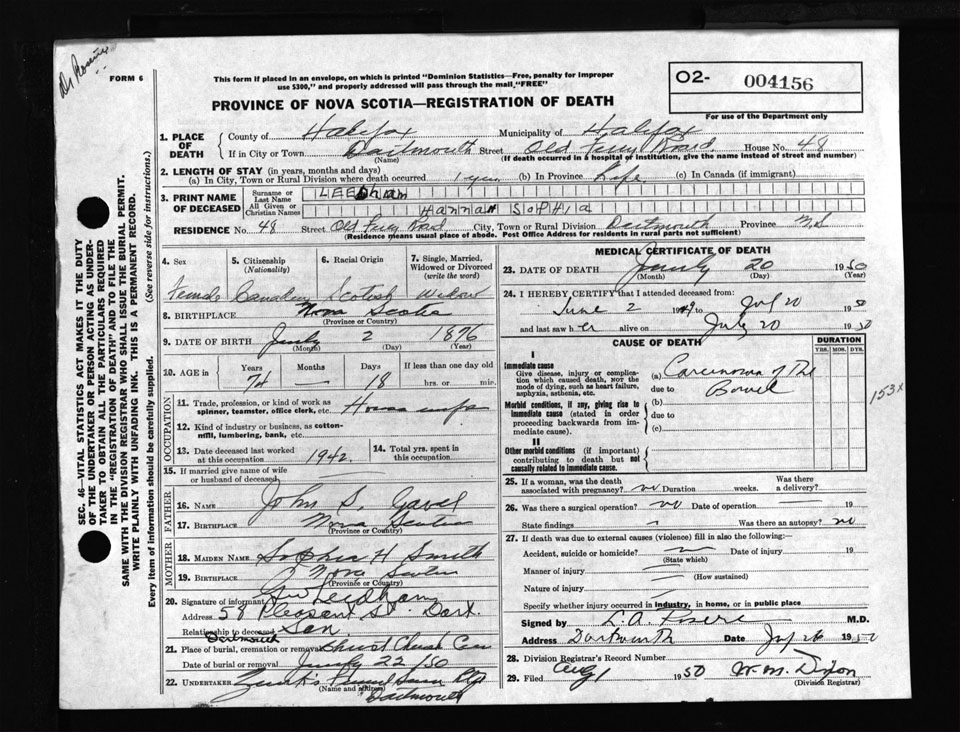 FORM 6
This form if placed in an envelope, on which is printed "Dominion Statistics—Free, penalty for improper
use $300," and properly addressed will pass through the mail,"FREE"
O2- 004156
For use of the Department only
PROVINCE OF NOVA SCOTIA—REGISTRATION OF DEATH
1. PLACE OF DEATH
County of Halifax Municipality of Halifax
If in City or Town Dartmouth Street Old Ferry Road. House No. 48
(Name) (If death occurred in a hospital or institution, give the name instead of street and number)
2. LENGTH OF STAY (in years, months and days)
(a) In City, Town or Rural Division where death occurred 1 yr. (b) In Province Life (c) In Canada (if immigrant)
3. PRINT NAME OF DECEASED
Surname or Last Name LEEDham
All Given or Christian Names HannaH SoPHia
RESIDENCE No. 48 Street Old Ferry Road City, Town or Rural Division Dartmouth Province N.S
(Residence means usual place of abode. Post Office Address for residents in rural parts not sufficient)
4. Sex 5. Citizenship (Nationality) 6. Racial Origin 7. Single, Married, Widowed or Divorced (write the word)
Female Canadian Scotish Widow
8. BIRTHPLACE Nova Scotia
(Province or Country)
9. DATE OF BIRTH 2 1876
(Month) (Day) (Year)
10. AGE in Years Months Days If less than one day old
74 — 18 hrs. or min.
OCCUPATION
11. Trade, profession, or kind of work as spinner, teamster, office clerk, etc. House wife
12. Kind of industry or business, as cotton-mill, lumbering, bank, etc.
13. Date deceased last worked at this occupation 1942. 14. Total yrs. spent in this occupation
15. If married give name of wife or husband of deceased
FATHER
16. NAME John S. Gavel
17. BIRTHPLACE Nova Scotia
MOTHER
18. MAIDEN NAME Sophia H Smith
19. BIRTHPLACE Nova Scotia
(Province or Country)
20. Signature of informant Leedham
Address 58 Pleasant St. Dart.
Relationship to deceased Son.
Dartmouth
21. Place of burial, cremation or removal Christ Church Cem
Date of burial or removal 22/50
22. UNDERTAKER
(Name and address) Dartmouth
MEDICAL CERTIFICATE OF DEATH
23. DATE OF DEATH 20 1950
(Month) (Day) (Year)
24. I HEREBY CERTIFY that I attended deceased from:
June 2 1949 to July 20 1950
and last saw her alive on July 20 1950
CAUSE OF DEATH DURATION
YRS. MOS. DYS.
I
Immediate cause
Give disease, injury or complication which caused death, NOT the mode of dying, such as heart failure, asphyxia, asthenia, etc.
(a) Carcinoma of the
due to Bowel
153x
Morbid conditions, if any, giving rise to immediate cause (stated in order proceeding backwards from immediate cause).
(b)
due to
(c)
II
Other morbid conditions (if important) contributing to death but not causally related to immediate cause.
25. If a woman, was the death associated with pregnancy? no Duration weeks. Was there a delivery?
26. Was there a surgical operation? no Date of operation 19
State findings Was there an autopsy? no
27. If death was due to external causes (violence) fill in also the following:—
Accident, suicide or homicide? Date of injury 19
(State which)
Manner of injury
(How sustained)
Nature of injury
Specify whether injury occurred in industry, in home, or in public place
Signed by M.D.
Address Dartmouth Date July 26 1950
28. Division Registrar's Record Number
29. Filed Aug 1 1950 W. M. Dixon
(Division Registrar)
SEC. 46—VITAL STATISTICS ACT MAKES IT THE DUTY
OF THE UNDERTAKER OR PERSON ACTING AS UNDERTAKER TO OBTAIN ALL THE PARTICULARS REQUIRED
IN THE "REGISTRATION OF DEATH" AND TO FILE THE
SAME WITH THE DIVISION REGISTRAR WHO SHALL ISSUE THE BURIAL PERMIT.
WRITE PLAINLY WITH UNFADING INK. THIS IS A PERMANENT RECORD.
Every item of information should be carefully supplied. (See reverse side for instructions.)